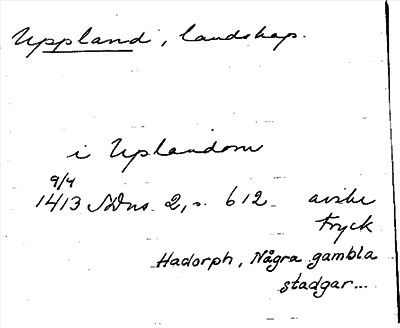 Uppland, landskap.
i Uplandom
9/4
1413 SDns 2, s. 612 avskr
tryck
Hadorph, Några gambla
stadgar...